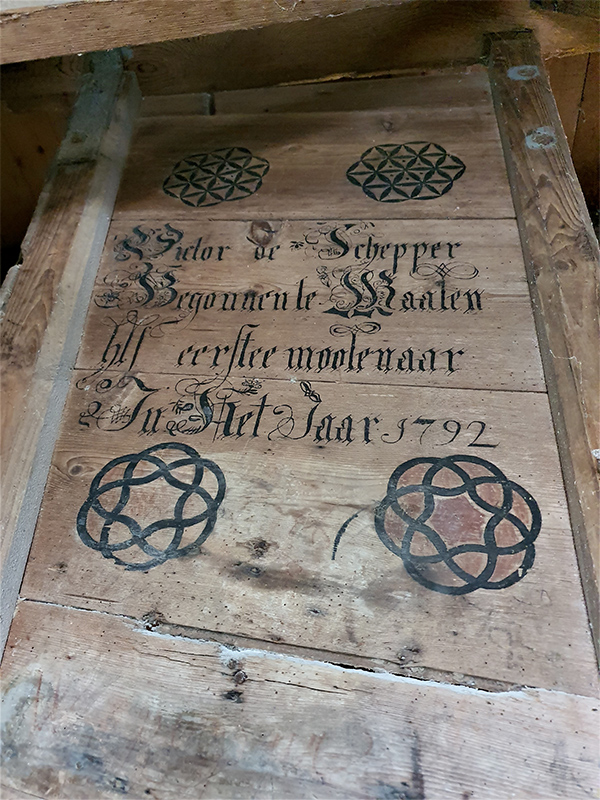 Victor de Schepper
Begonnen te Maalen
als eerstee moolenaar
In Het Jaar 1792